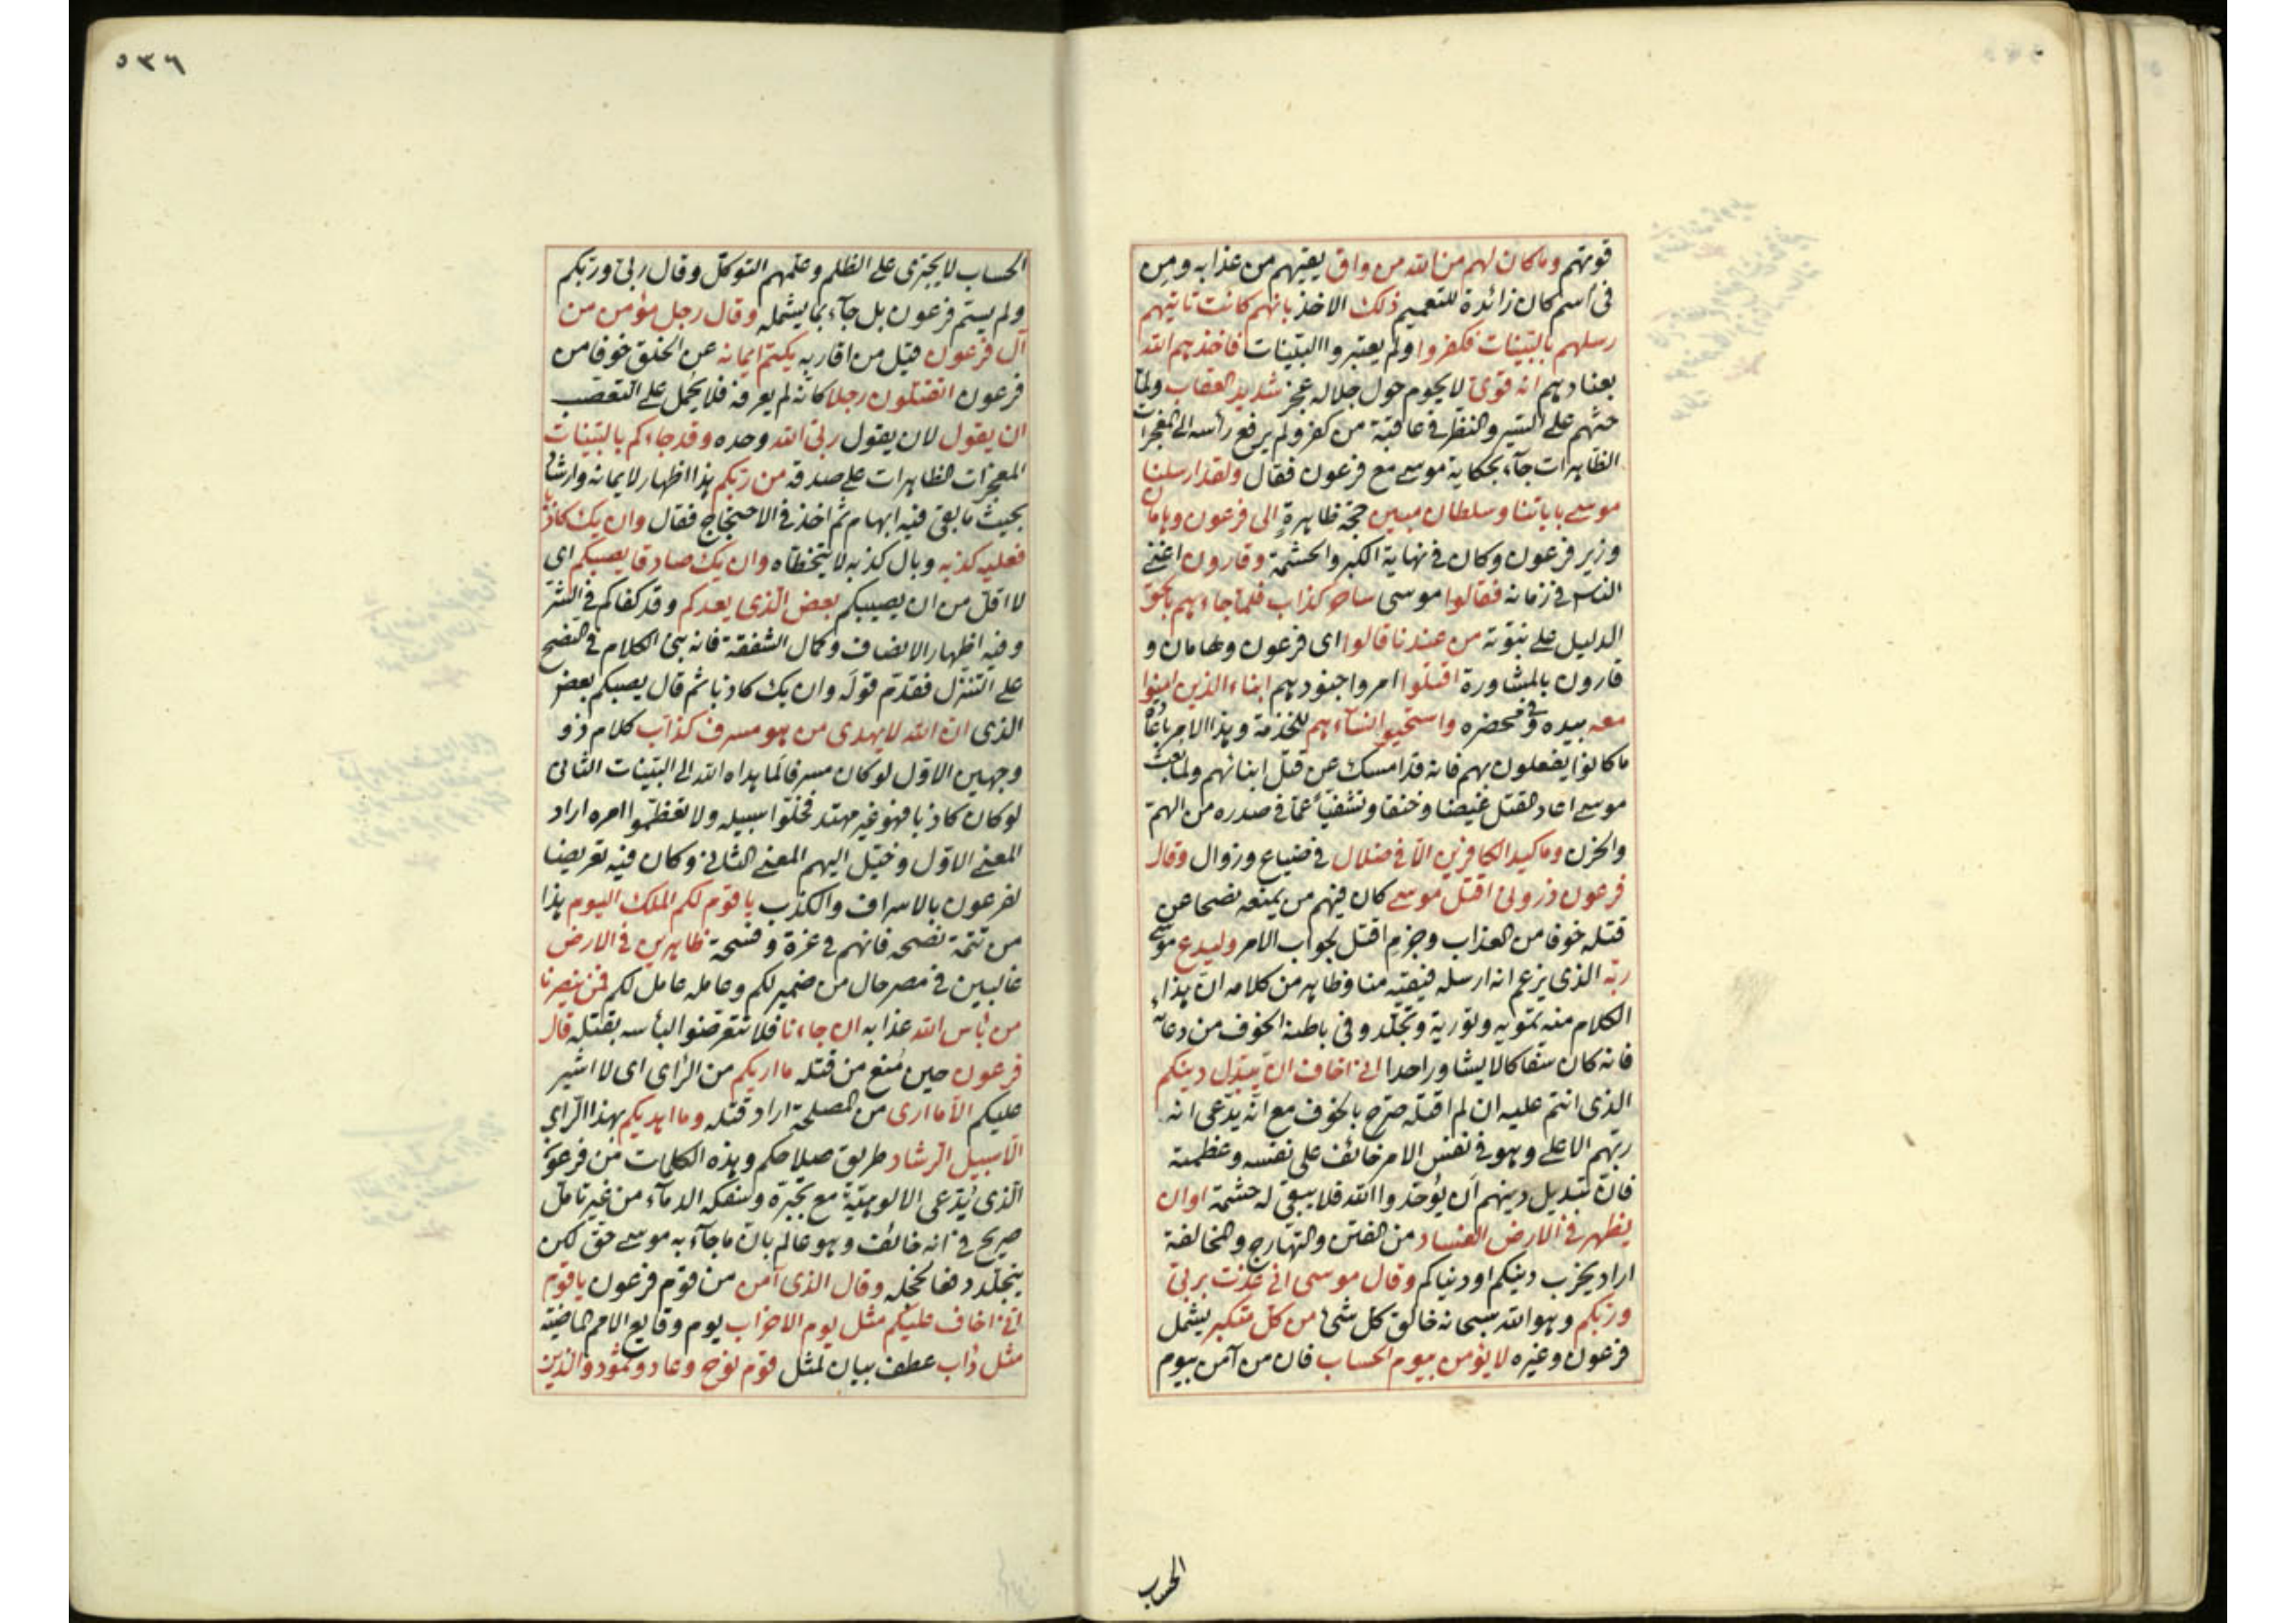 قوتهم وما كان لهم من الله من واق يقيهم من عذابه ومن
فى اسم كان زائدة للتعميم ذلك الاخذ بانهم كانت تاتيهم
رسلهم بالبينات فكفروا ولم يعتبروا البينات فاخذهم الله
بعنادهم انه قوى لا يحوم حول جلاله عجز شديد العقاب ولما
حثهم على السير والنظر فى عاقبة من كفر ولم يرفع رأسه الى المعجزات
الظاهرات جآء بحكاية موسى مع فرعون فقال ولقد ارسلنا
موسى باياتنا وسلطان مبين حجة ظاهرة الى فرعون وهامان
وزير فرعون وكان فى نهاية الكبر والحشمة وقارون اغنى
الناس فى زمانه فقالوا موسى ساحر كذاب فلما جاءهم بالحق
الدليل على نبوته من عندنا قالوا اى فرعون وهامان و
قارون بالمشاورة اقتلوا امروا جنودهم ابناء الذين امنوا
معه بيده وفى محضره واستحيوا نساءهم للخدمة وهذا الامر باعادة
ما كانوا يفعلون بهم فانه قد امسك عن قتل ابنائهم ولما بعث
موسى اعاد القتل غيضا وخنقا وتشفيا عما فى صدره من الهم
والحزن وما كيد الكافرين الا فى ضلال فى ضياع وزوال وقال
فرعون ذرونى اقتل موسى كان فيهم من يمنعه نصحا عن
قتله خوفا من العذاب وجزم اقتل بجواب الامر وليدع موسى
ربه الذى يزعم انه ارسله فيقيه منا وظاهر من كلامه ان هذا
الكلام منه تمويه وتورية وتجلد وفى باطنه الخوف من دعائه
فانه كان سفاكا لا يشاور احدا انى اخاف ان يبدل دينكم
الذى انتم عليه ان لم اقتله صرح بالخوف مع انه يدعى انه
ربهم الاعلى وهو فى نفس الامر خائف على نفسه وعظمته
فان تبديل دينهم ان يوحدوا الله فلا يبقى له حشمة او ان
يظهر فى الارض الفساد من الفتن والتهارج والمخالفة
اراد يخرب دينكم او دنياكم وقال موسى انى عذت بربى
وربكم وهو الله سبحانه خالق كل شئ من كل متكبر يشمل
فرعون وغيره لا يؤمن بيوم الحساب فان من آمن بيوم
الحساب
٥٣٦
الحساب لا يجترى على الظلم وعلمهم التوكل وقال ربى وربكم
ولم يسم فرعون بل جآء بما يشمله وقال رجل مؤمن من
آل فرعون قيل من اقاربه يكتم ايمانه عن الخلق خوفا من
فرعون اتقتلون رجلا كانه لم يعرفه فلا يحمل على التعصب
ان يقول لان يقول ربى الله وحده وقد جاءكم بالبينات
المعجزات الظاهرات على صدقه من ربكم هذا اظهار لايمانه وارشاد
بحيث ما بقى فيه ابهام ثم اخذ فى الاحتجاج فقال وان يك كاذبا
فعليه كذبه وبال كذبه لا يتخطاه وان يك صادقا يصبكم اى
لا اقل من ان يصيبكم بعض الذى يعدكم وقد كفاكم فى الشر
وفيه اظهار الانصاف وكمال الشفقة فانه بنى الكلام فى النصح
على التنزل فقدم قوله وان يك كاذبا ثم قال يصبكم بعض
الذى ان الله لا يهدى من هو مسرف كذاب كلام ذو
وجهين الاول لو كان مسرفا لما هداه الله الى البينات الثانى
لو كان كاذبا فهو غير مهتد فخلوا سبيله ولا تعظموا امره اراد
المعنى الاول وخيل اليهم المعنى الثانى وكان فيه تعريضا
لفرعون بالاسراف والكذب يا قوم لكم الملك اليوم هذا
من تتمة نصحه فانهم فى عزة وفسحة ظاهرين فى الارض
غالبين فى مصر حال من ضمير لكم وعامله عامل لكم فمن ينصرنا
من بأس الله عذابه ان جاءنا فلا تتعرضوا لبأسه بقتله قال
فرعون حين منع من قتله ما اريكم من الراى اى لا اشير
عليكم الا ما ارى من المصلحة اراد قتله وما اهديكم بهذا الراى
الا سبيل الرشاد طريق صلاحكم وهذه الكلمات من فرعون
الذى يدعى الالوهية مع تجبره وسفكه الدماء من غير تأمل
صريح فى انه خائف وهو عالم بان ما جآء به موسى حق لكن
يتجلد دفعا لخجله وقال الذى آمن من قوم فرعون يا قوم
انى اخاف عليكم مثل يوم الاحزاب يوم وقايع الامم الماضية
مثل دأب عطف بيان لمثل قوم نوح وعاد وثمود والذين